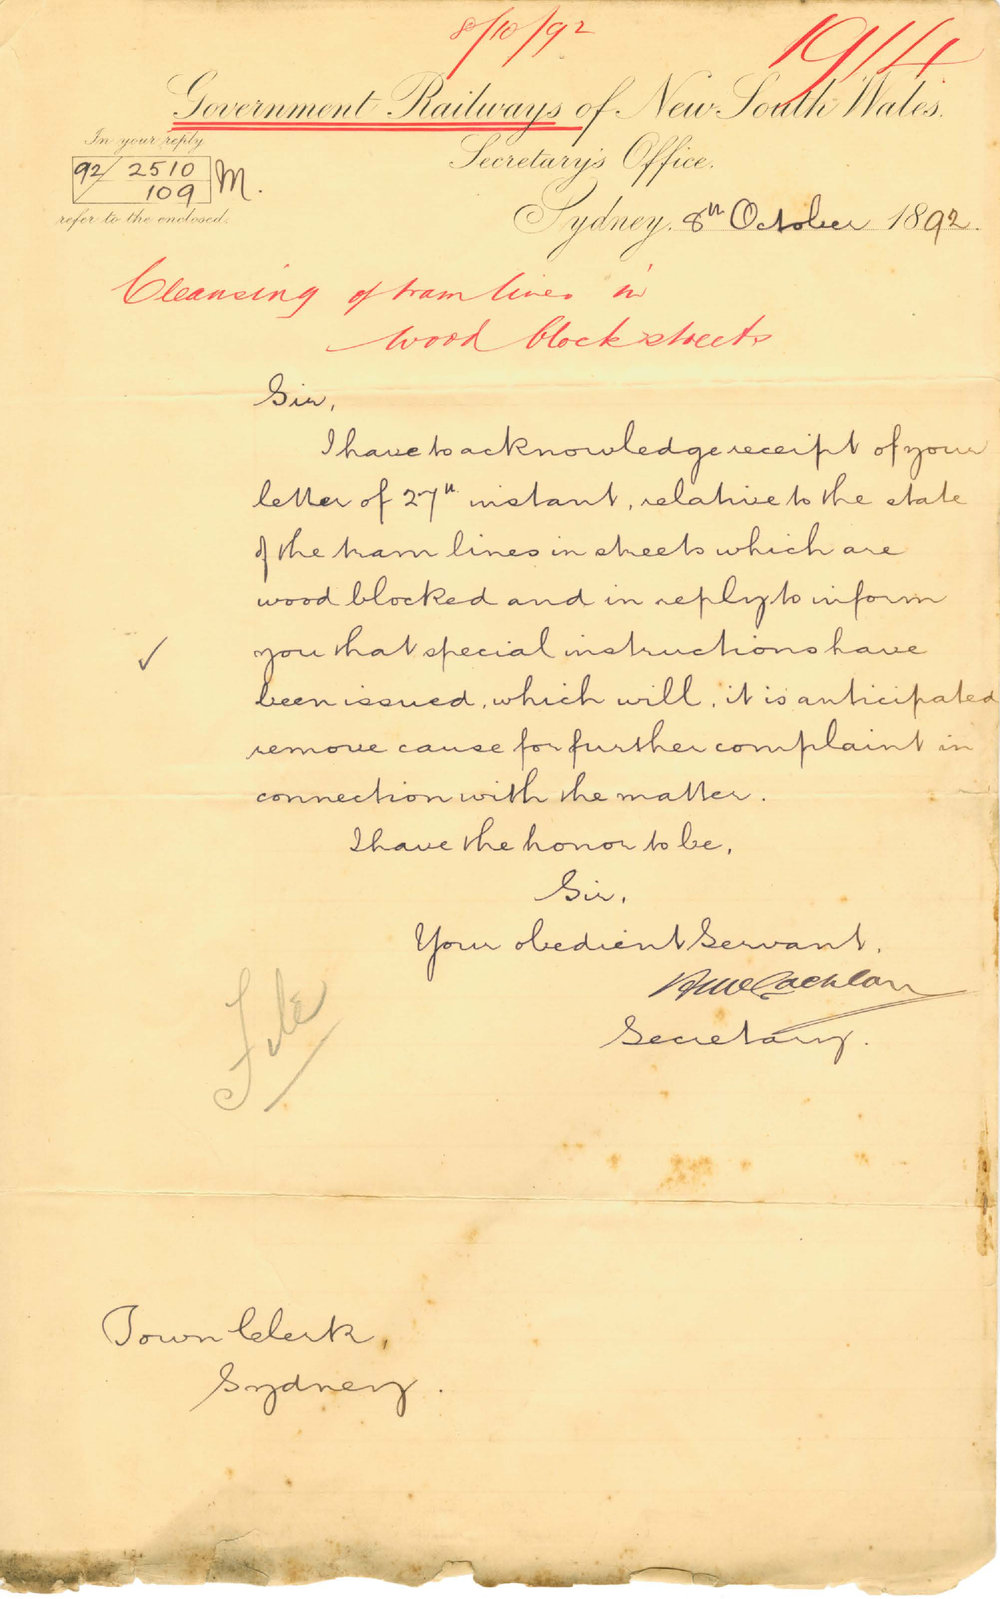 8/10/92
1914
Government Railways of New South Wales.
In your reply
92/2510
109
M.
refer to the enclosed.
Secretary's Office.
Sydney, 8th October 1892.
Cleansing of tram lines in
wood block streets
Sir,
I have to acknowledge receipt of your
letter of 27th instant, relative to the state
of the tram lines in streets which are
wood blocked and in reply to inform
you that special instructions have
been issued, which will, it is anticipated
remove cause for further complaint in
connection with the matter.
I have the honor to be,
Sir,
Your obedient Servant,
H McLachlan
Secretary.
File
Town Clerk,
Sydney.